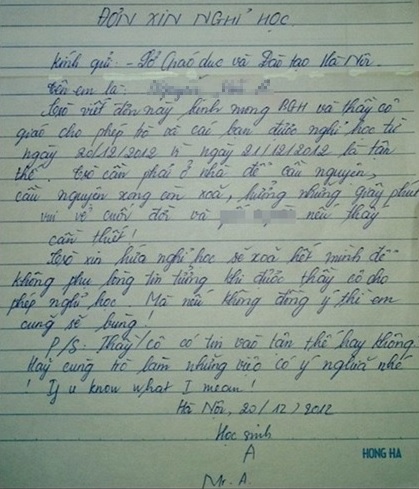 ĐƠN XIN NGHỈ HỌC
Kính gửi: - Sở Giáo dục và Đào tạo Hà Nội.
Tên em là:
Tớ viết đơn này kính mong BGH và thầy cô
giáo cho phép tớ và các bạn được nghỉ học từ
ngày 20/12/2012 vì ngày 21/12/2012 là tận
thế. Tớ cần phải ở nhà để cầu nguyện,
cầu nguyện xong còn xoã, hưởng những giây phút
vui vẻ cuối đời và nếu thấy
cần thiết!
Tớ xin hứa nghỉ học sẽ xoã hết mình để
không phụ lòng tin tưởng khi được thầy cô cho
phép nghỉ học. Mà nếu không đồng ý thì em
cũng sẽ bùng!
P/S: Thầy cô có tin vào tận thế hay không
Hãy cùng trò làm những việc có ý nghĩa nhé
! If u know what I mean!
Hà Nội, 20/12/2012
Học sinh
A
Mr. A.
HONG HA